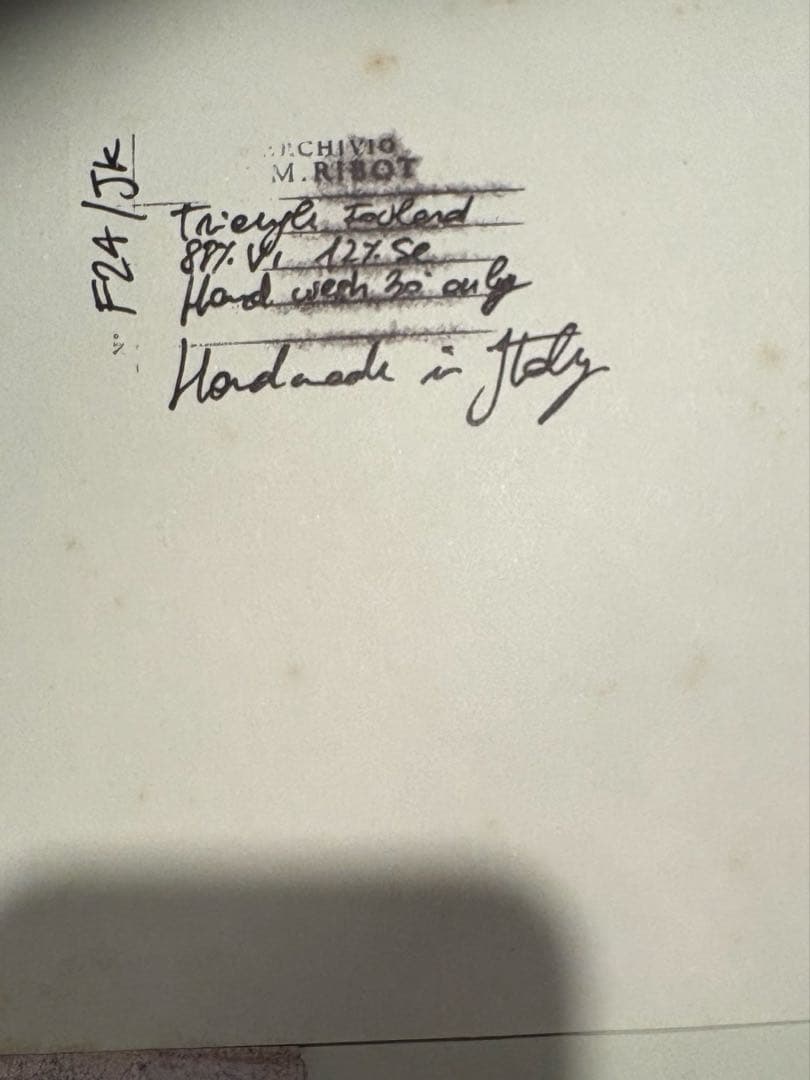 F24/JK
ARCHIVIO
M. RIBOT
Triangle Foulard
88% VI 12% Se
Hand wash 30° only
Handmade in Italy